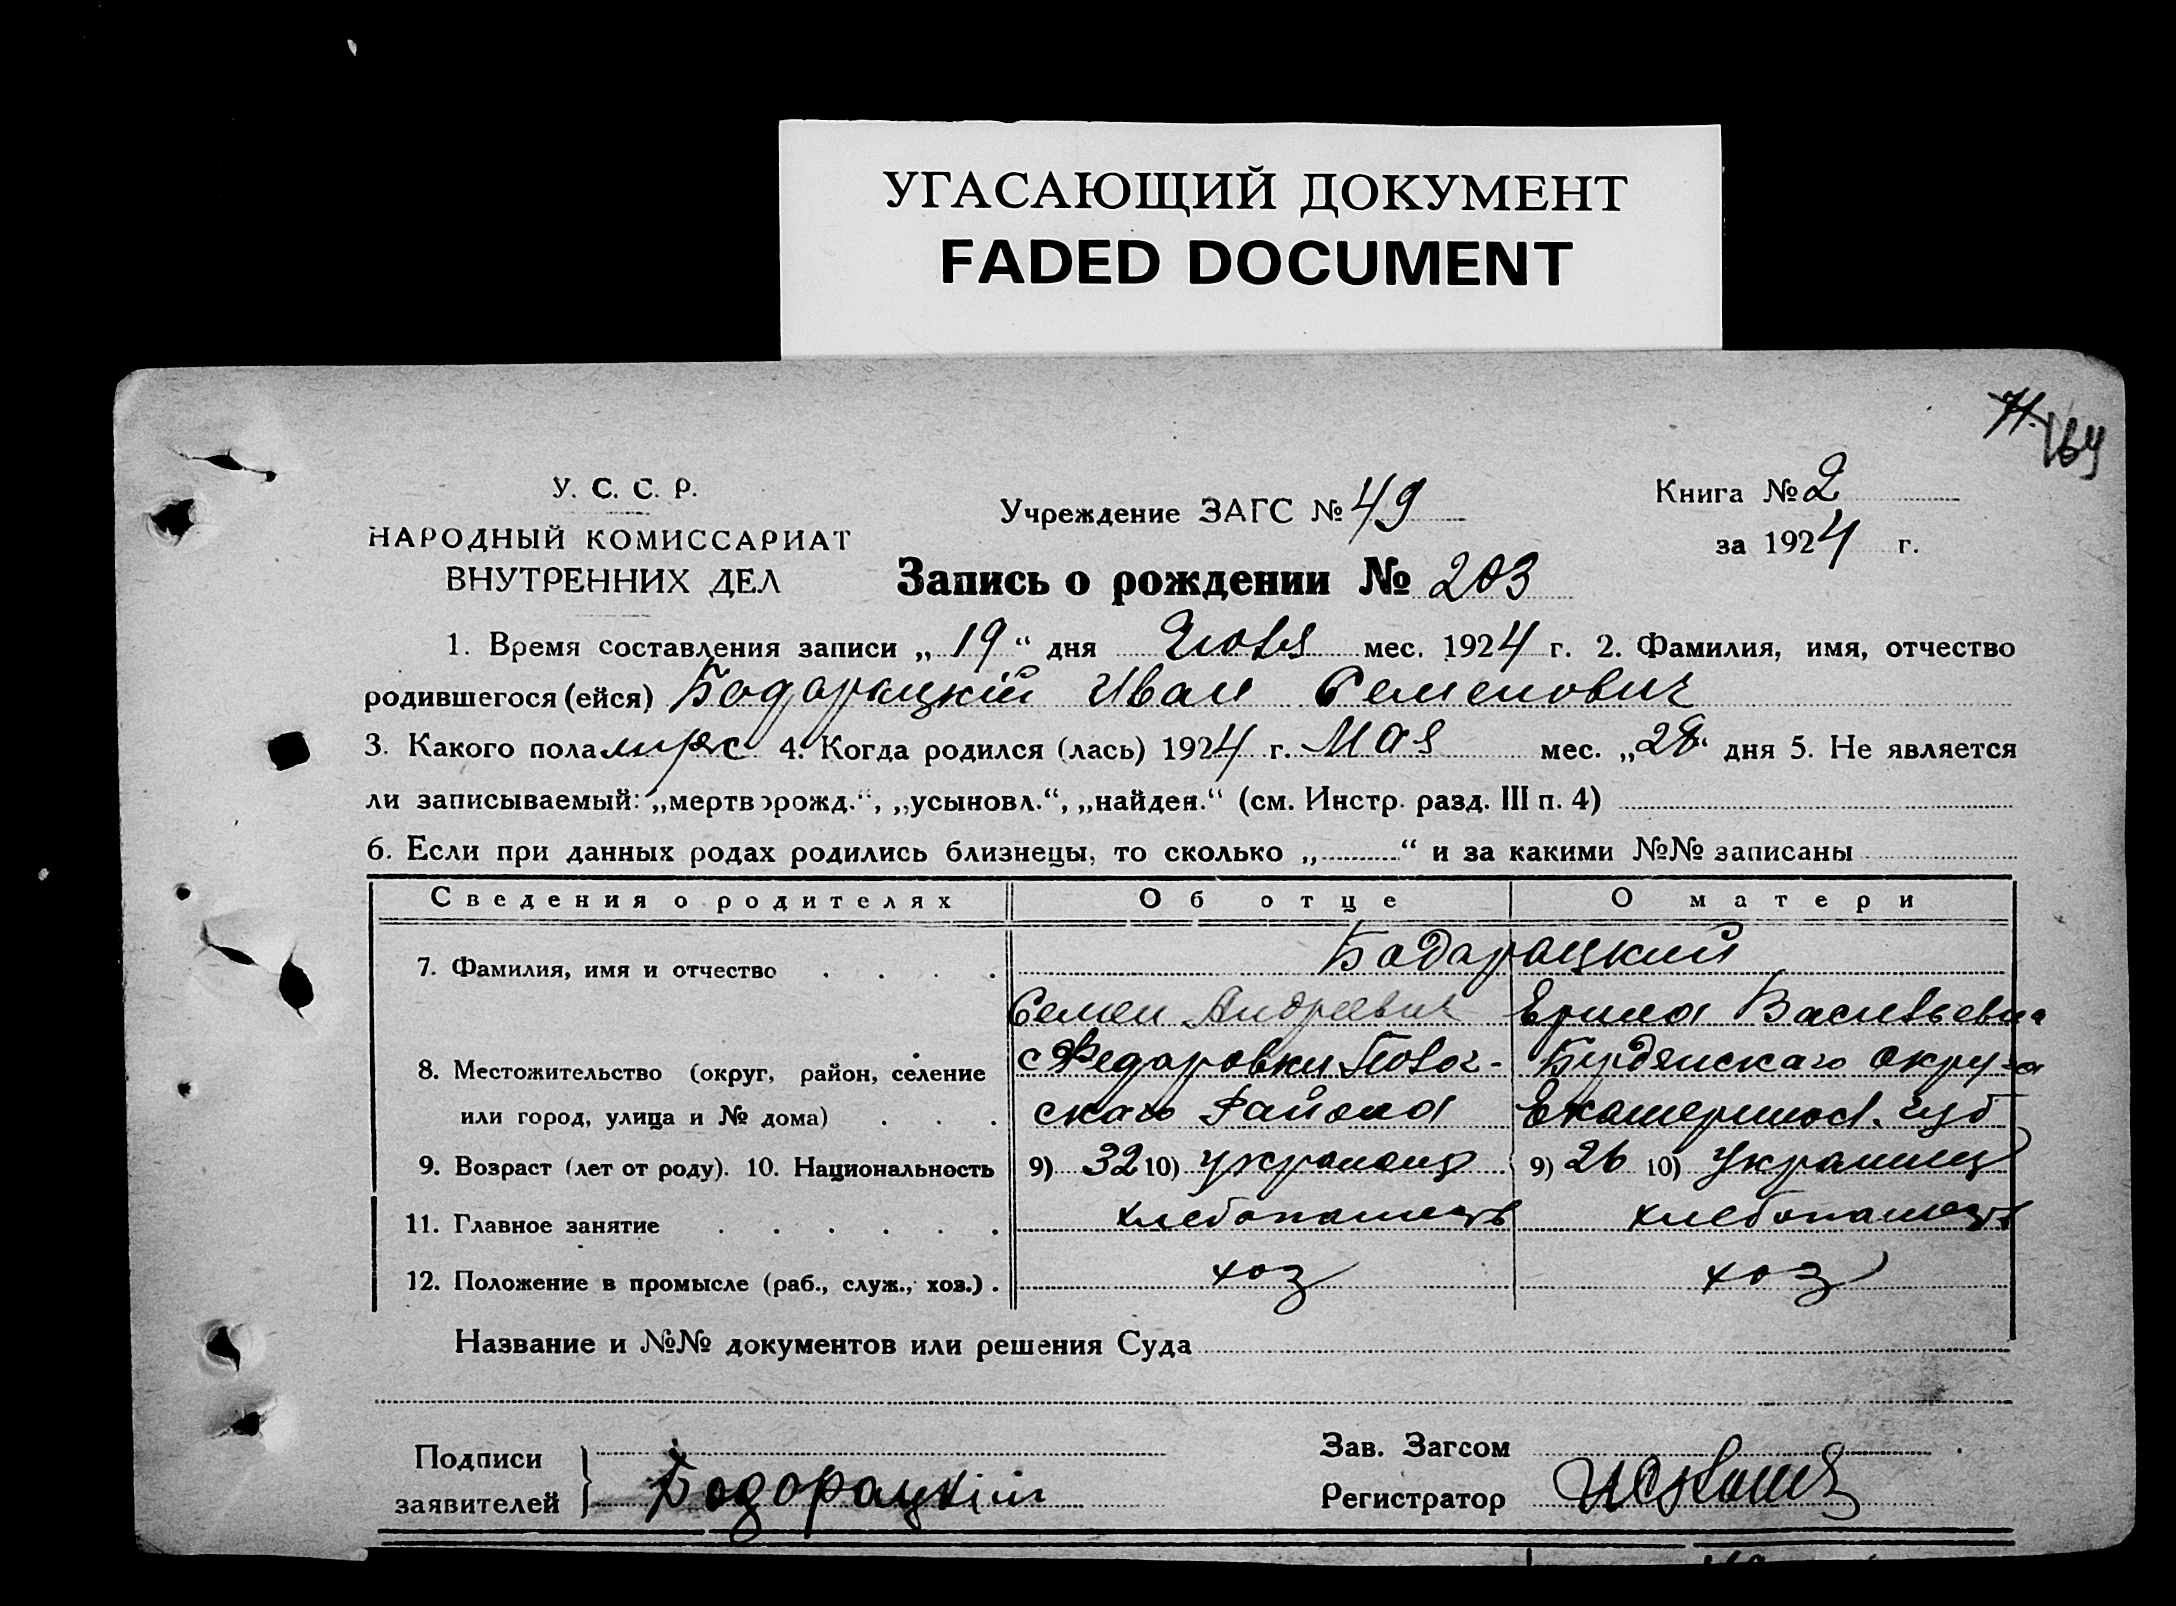 УГАСАЮЩИЙ ДОКУМЕНТ
FADED DOCUMENT
71.
169
У. С. С. Р.
НАРОДНЫЙ КОМИССАРИАТ
ВНУТРЕННИХ ДЕЛ
Учреждение ЗАГС № 49
Книга № 2
за 1924 г.
Запись о рождении № 203
1. Время составления записи „19“ дня мес. 1924 г. 2. Фамилия, имя, отчество
родившегося (ейся) Бодорацкій Иван Семенович
3. Какого пола 4. Когда родился (лась) 1924 г. Мая мес. „28“ дня 5. Не является
ли записываемый: „мертворожд.“, „усыновл.“, „найден.“ (см. Инстр. разд. III п. 4)
6. Если при данных родах родились близнецы, то сколько „ “ и за какими №№ записаны
Сведения о родителях Об отце О матери
7. Фамилия, имя и отчество Бадарацкий
Семен Андреевич Васильевна
8. Местожительство (округ, район, селение с Федоровки Бердянскаго округа
или город, улица и № дома) скаго Района Екатериносл. губ
9. Возраст (лет от роду). 10. Национальность 9) 32 10) 9) 26 10) Украинец
11. Главное занятие хлебопашець хлебопашець
12. Положение в промысле (раб., служ., хоз.) хоз хоз
Название и №№ документов или решения Суда
Подписи
заявителей Бодорацкій
Зав. Загсом
Регистратор